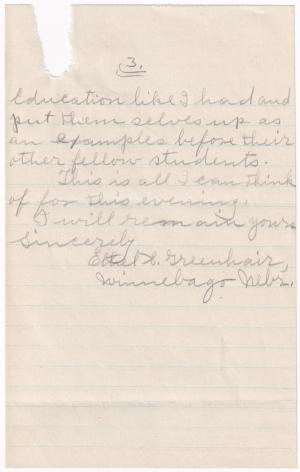 3.
education like I had and
put them selves up as
an examples before their
other fellow students.
This is all I can think
of for this evening.
I will remain yours
Sincerely
Ethel H. Greenhair,
Winnebago Nebr.